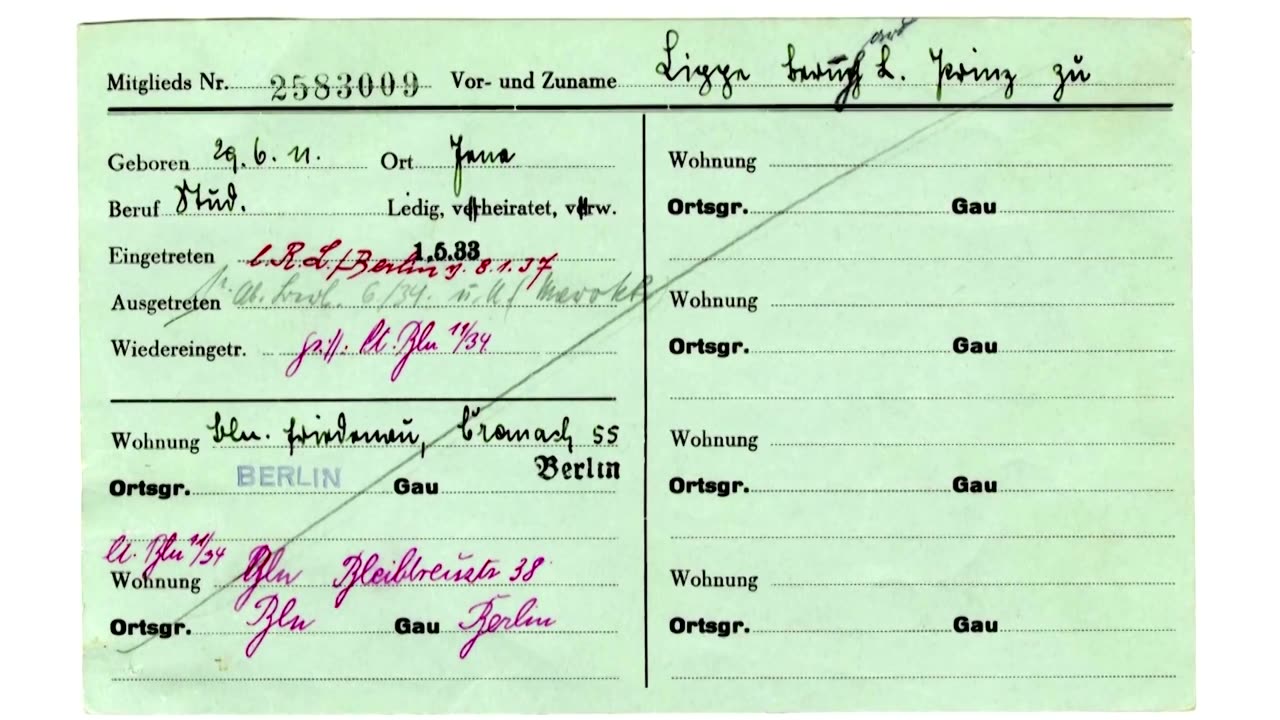 Mitglieds Nr. 2583009 Vor- und Zuname Lippe Bernh. L. Prinz zu
Geboren 29.6.11. Ort Jena
Beruf Stud. Ledig, verheiratet, verw.
Eingetreten 1.5.33
l. R.L./Berlin v. 8.1.37
Ausgetreten 6/34. u. Marokko
Wiedereingetr. lt. Bln 11/34
Wohnung Bln. Friedenau, Cranach 55
Ortsgr. BERLIN Gau Berlin
lt. Bln 11/34
Wohnung Bln Bleibtreustr 38
Ortsgr. Bln Gau Berlin
Wohnung
Ortsgr. Gau
Wohnung
Ortsgr. Gau
Wohnung
Ortsgr. Gau
Wohnung
Ortsgr. Gau